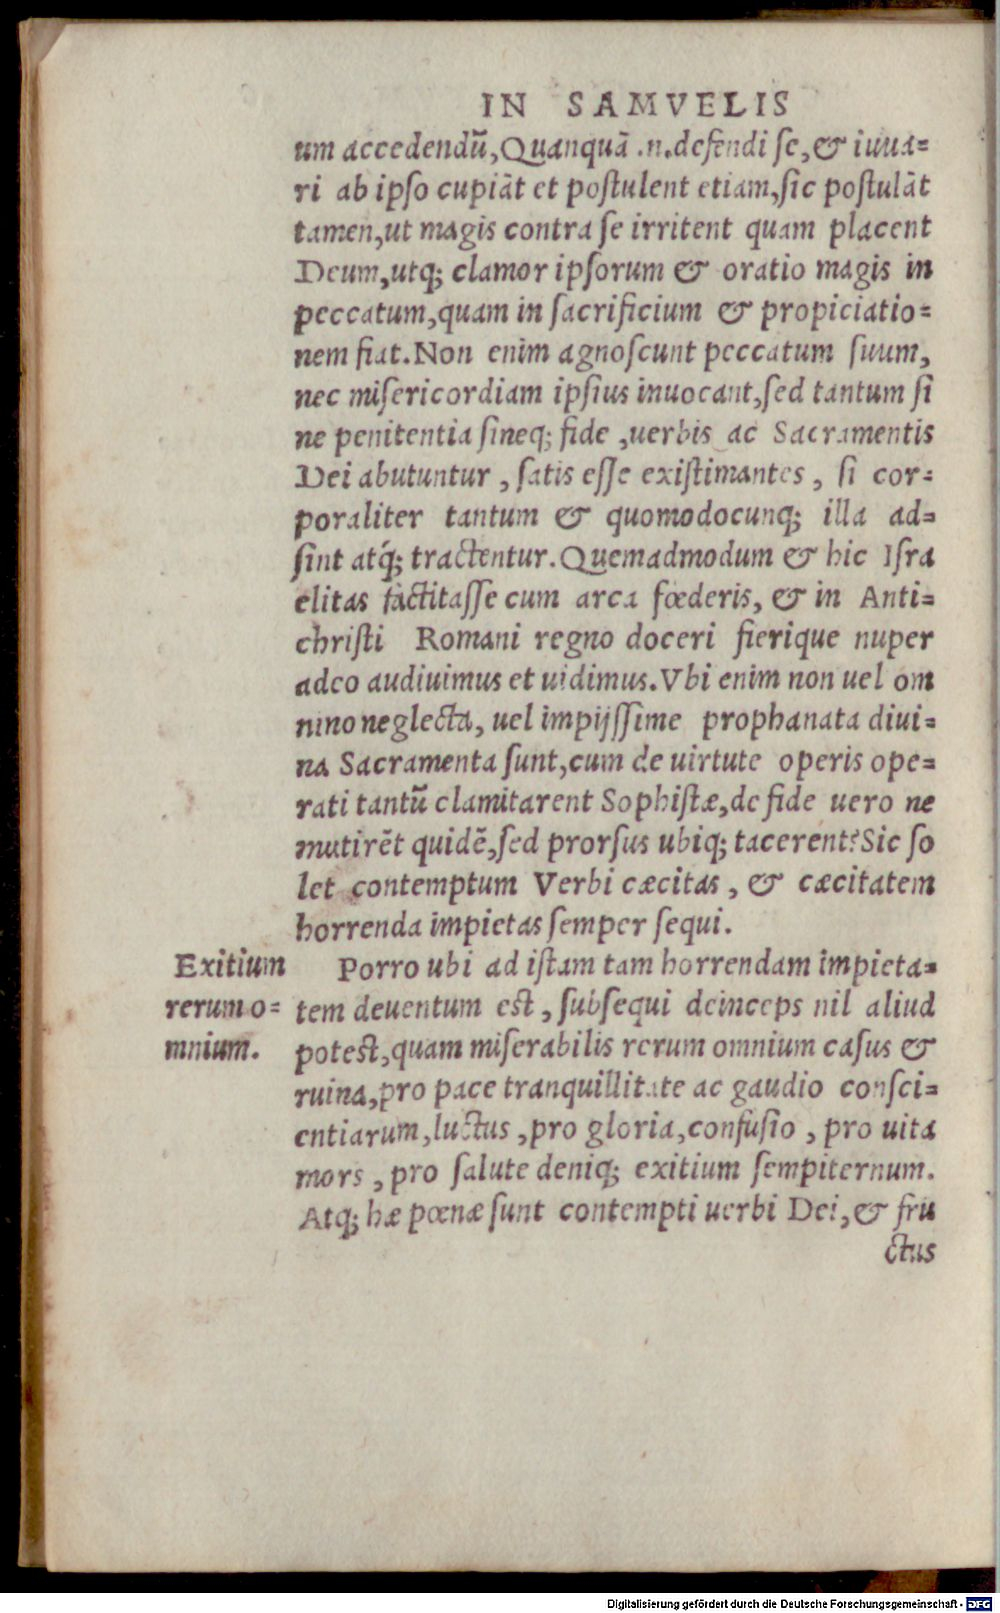 IN SAMVELIS
um accedendū, Quanquā .n. defendi se, & iuua=
ri ab ipso cupiāt et postulent etiam, sic postulāt
tamen, ut magis contra se irritent quam placent
Deum, utq; clamor ipsorum & oratio magis in
peccatum, quam in sacrificium & propiciatio=
nem fiat. Non enim agnoscunt peccatum suum,
nec misericordiam ipsius inuocant, sed tantum si
ne penitentia sineq; fide, uerbis ac Sacramentis
Dei abutuntur, satis esse existimantes, si cor=
poraliter tantum & quomodocunq; illa ad=
sint atq́; tractentur. Quemadmodum & hic Isra
elitas factitasse cum arca fœderis, & in Anti=
christi Romani regno doceri fierique nuper
adeo audiuimus et uidimus. Vbi enim non uel om
nino neglecta, uel impijssime prophanata diui=
na Sacramenta sunt, cum de uirtute operis ope=
rati tantū clamitarent Sophistæ, de fide uero ne
mutirēt quidē, sed prorsus ubiq; tacerent? Sic so
let contemptum Verbi cæcitas, & cæcitatem
horrenda impietas semper sequi.
Exitium
rerum o=
mnium.
Porro ubi ad istam tam horrendam impieta=
tem deuentum est, subsequi deinceps nil aliud
potest, quam miserabilis rerum omnium casus &
ruina, pro pace tranquillitate ac gaudio consci=
entiarum, luctus, pro gloria, confusio, pro uita
mors, pro salute deniq; exitium sempiternum.
Atq; hæ pœnæ sunt contempti uerbi Dei, & fru
ctus
Digitalisierung gefördert durch die Deutsche Forschungsgemeinschaft - DFG